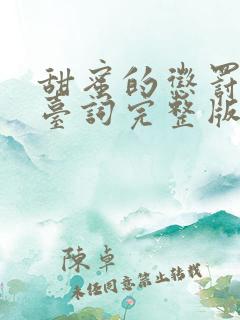 甜蜜的懲罰
臺詞完整版
陳卓
未经同意禁止转载